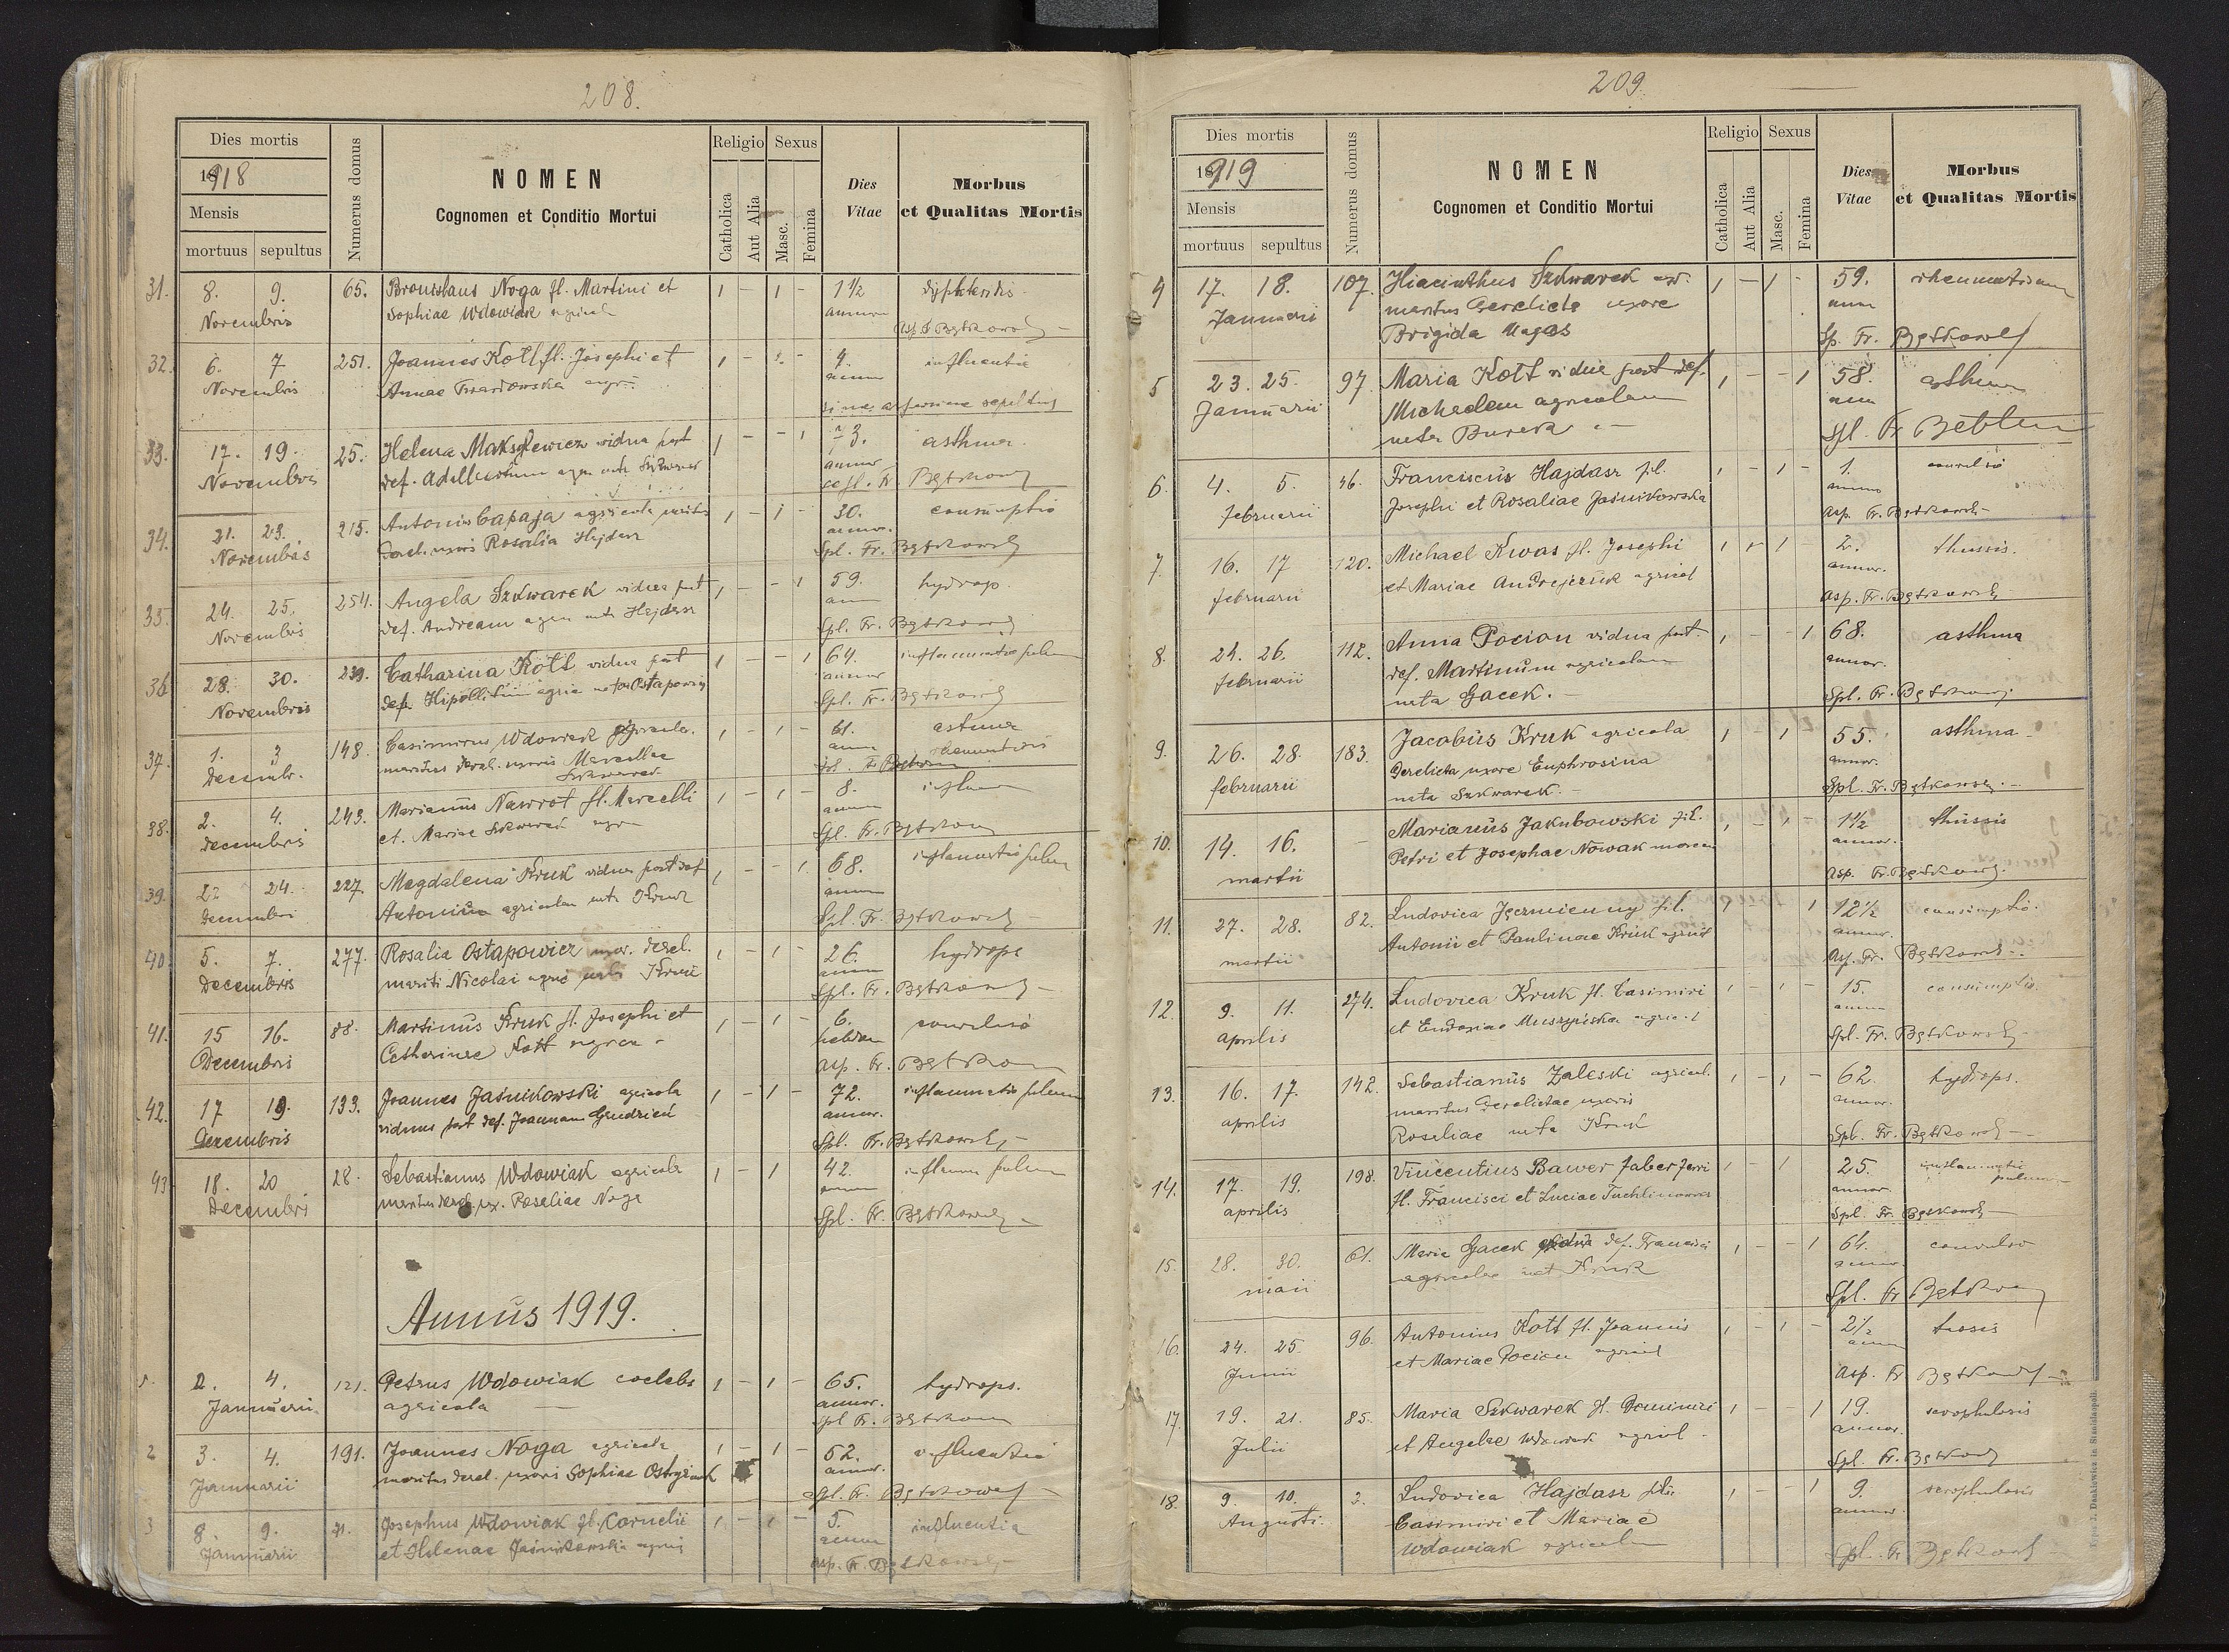 208.
Dies mortis
1918
Mensis
mortuus sepultus
Numerus domus
NOMEN
Cognomen et Conditio Mortui
Religio
Catholica
Aut Alia
Sexus
Masc.
Femina
Dies
Vitae
Morbus
et Qualitas Mortis
31. 8. 9. 65. Bronislaus Noga fl. Martini et 1 - 1 - 1½
Novembris Sophiae Wdowiak agricol
32. 6. 7 251. Joannes Kott fl. Josephi et 1 - 1 - 4. influentia
Novembris Annae
33. 17. 19. 25. Helena vidua post 1 - - 1 73. asthma.
Novembris def.
Fr. Bętkowsk
34. 21. 23. 215. Antonius Capaja agricola maritus 1 - 1 - 30. consumptio
Novembris derel. uxoris Rosalia Hajdasz annor.
Spl. Fr. Bętkowsk
35. 24. 25. 254. Angela Szkwarek vidua post 1 - - 1 59. hydrops
Novembris def. Andream nata Hajdasz
Spl. Fr. Bętkowsk
36 28. 30. 239. Catharina Kott vidua post 1 - - 1 64. inflammatio pulm
Novembris def. Hipollitum agric nata Ostapowicz annor
Spl. Fr. Bętkowsk
37. 1. 3 148. Casimirus Wdowiak agricola 1 - 1 - 61.
Decembr. maritus derel. uxoris Marcellae
Szkwarek
38. 2. 4. 243. Marianus Nawrot fl. Marcelli 1 - 1 - 8.
Decembris et. Mariae Szkwarek
Spl. Fr. Bętkow
39. 22 24. 227. Magdalena Kruk vidua post def 1 - - 1 68. inflammatio pulm
Decembri Antonium agricolam nata Kruk
Spl. Fr. Bętkowsk
40 5. 7. 277. Rosalia Ostapowicz uxor. derel. 1 - 1 - 26. hydrops
Decembris mariti Nicolai agric nata Kruk
Spl. Fr. Bętkowsk
41. 15 16. 88. Martinus Kruk fl. Josephi et 1 - 1 - 6. convulsio
Decembris Catharinae Kott
Asp. Fr. Bętkow
42. 17 19. 133. Joannes Jaśnikowski agricola 1 - 1 - 72. inflammatio pulmn
Decembris viduus post def. Joannam Gendziek annor.
Spl. Fr. Bętkowsk
43 18. 20 28. Sebastianus Wdowiak agricola 1 - 1 42. inflamm pulm
Decembris maritus derel. ux. Rosaliae Noga
Spl. Fr. Bętkowsk
Annus 1919.
1. 2. 4. 121. Petrus Wdowiak coelebs 1 - 1 - 65. hydrops.
Januarii agricola annor.
Spl Fr. Bętkow
2 3. 4. 191. Joannes Noga agricola 1 - 1 - 52. influentia
Januarii maritus derel. uxoris Sophiae annor.
Spl. Fr. Bętkowsk
3 8. 9. 21. Josephus Wdowiak fl. Cornelii 1 - 1 - 5. influentia
Januarii et Helenae Jaśnikowska agric
Asp. Fr. Bętkowsk
209.
Dies mortis
1919
Mensis
mortuus sepultus
Numerus domus
NOMEN
Cognomen et Conditio Mortui
Religio
Catholica
Aut Alia
Sexus
Masc.
Femina
Dies
Vitae
Morbus
et Qualitas Mortis
4 17. 18. 107. Hiacinthus Szkwarek agr. 1 - 1 - 59. rheumatismus
Januarii maritus derelicta uxore
Brigida Sp. Fr. Bętkowsk
5 23. 25. 97. Maria Kott vidua post def. 1 - - 1 58. asthma
Januarii Michaelem agricolam
nata Burek Spl. Fr
6. 4. 5. 46. Franciscus Hajdasz fil. 1 - 1 - 1. convulsio
februarii Josephi et Rosaliae Jaśnikowska
Asp. Fr. Bętkowsk
7. 16. 17 120. Michael Kwas fl. Josephi 1 - 1 - 2. thussis.
februarii et Mariae Andrejczuk agricol annor.
Asp. Fr. Bętkowsk
8. 24. 26. 112. Anna Pocion vidua post 1 - - 1 68. asthma
februarii def. Martinum agricolam annor.
nata Gacek. Spl. Fr. Bętkowsk
9. 26. 28. 183. Jacobus Kruk agricola 1 1 - 55. asthma
februarii derelicta uxore Euphrosina annor.
nata Szkwarek. Spl. Fr. Bętkowsk
10. 14. 16. - Marianus Jakubowski fil. 1 - 1 - 1½ thussis
martii Petri et Josephae Nowak annor.
Asp. Fr. Bętkowsk.
11. 27. 28. 82. Ludovica Jęczmienny fil. 1 1 12½ consumptio.
martii Antonii et Paulinae Kruk agricol annor.
Asp. Fr. Bętkowsk
12. 9. 11. 274. Ludovica Kruk fl. Casimiri 1 - 1 - 15. consumptio.
aprilis et Eudoxiae Muszyńska agricol
Spl. Fr. Bętkowsk
13. 16. 17. 142. Sebastianus Zaleski agricol. 1 - 1 - 62. hydrops.
aprilis maritus derelictae uxoris annor.
Rosaliae nata Kruk Spl. Fr. Bętkowsk
14. 17. 19. 198. Vincentius Bawer faber ferri 1 - 1 25. inflammatio
aprilis fl. Francisci et Luciae annor. pulmon
Spl. Fr. Bętkowsk
15. 28. 30. 61. Maria Gacek vidua def. Francisci 1 - - 1 64. convulsio
maii agricolae nat Kruk
Spl. Fr Bętkow
16. 24. 25. 96. Antonius Kott fl. Joannis 1 - 1 - 2½ tussis
Junii et Mariae Pocion agricol
Asp. Fr Bętkowsk
17. 19. 21. 85. Maria Szkwarek fl. 1 - - 1 19. scrophulosis
Julii et Angelae Wdowiak agricol. annor.
Spl. Fr. Bętkowsk
18. 9. 10. 3. Ludovica Hajdasz filia 1 - - 1 9. scrophulosis
Augusti. Casimiri et Mariae annor.
Wdowiak agricolae
Spl. Fr Bętkowsk